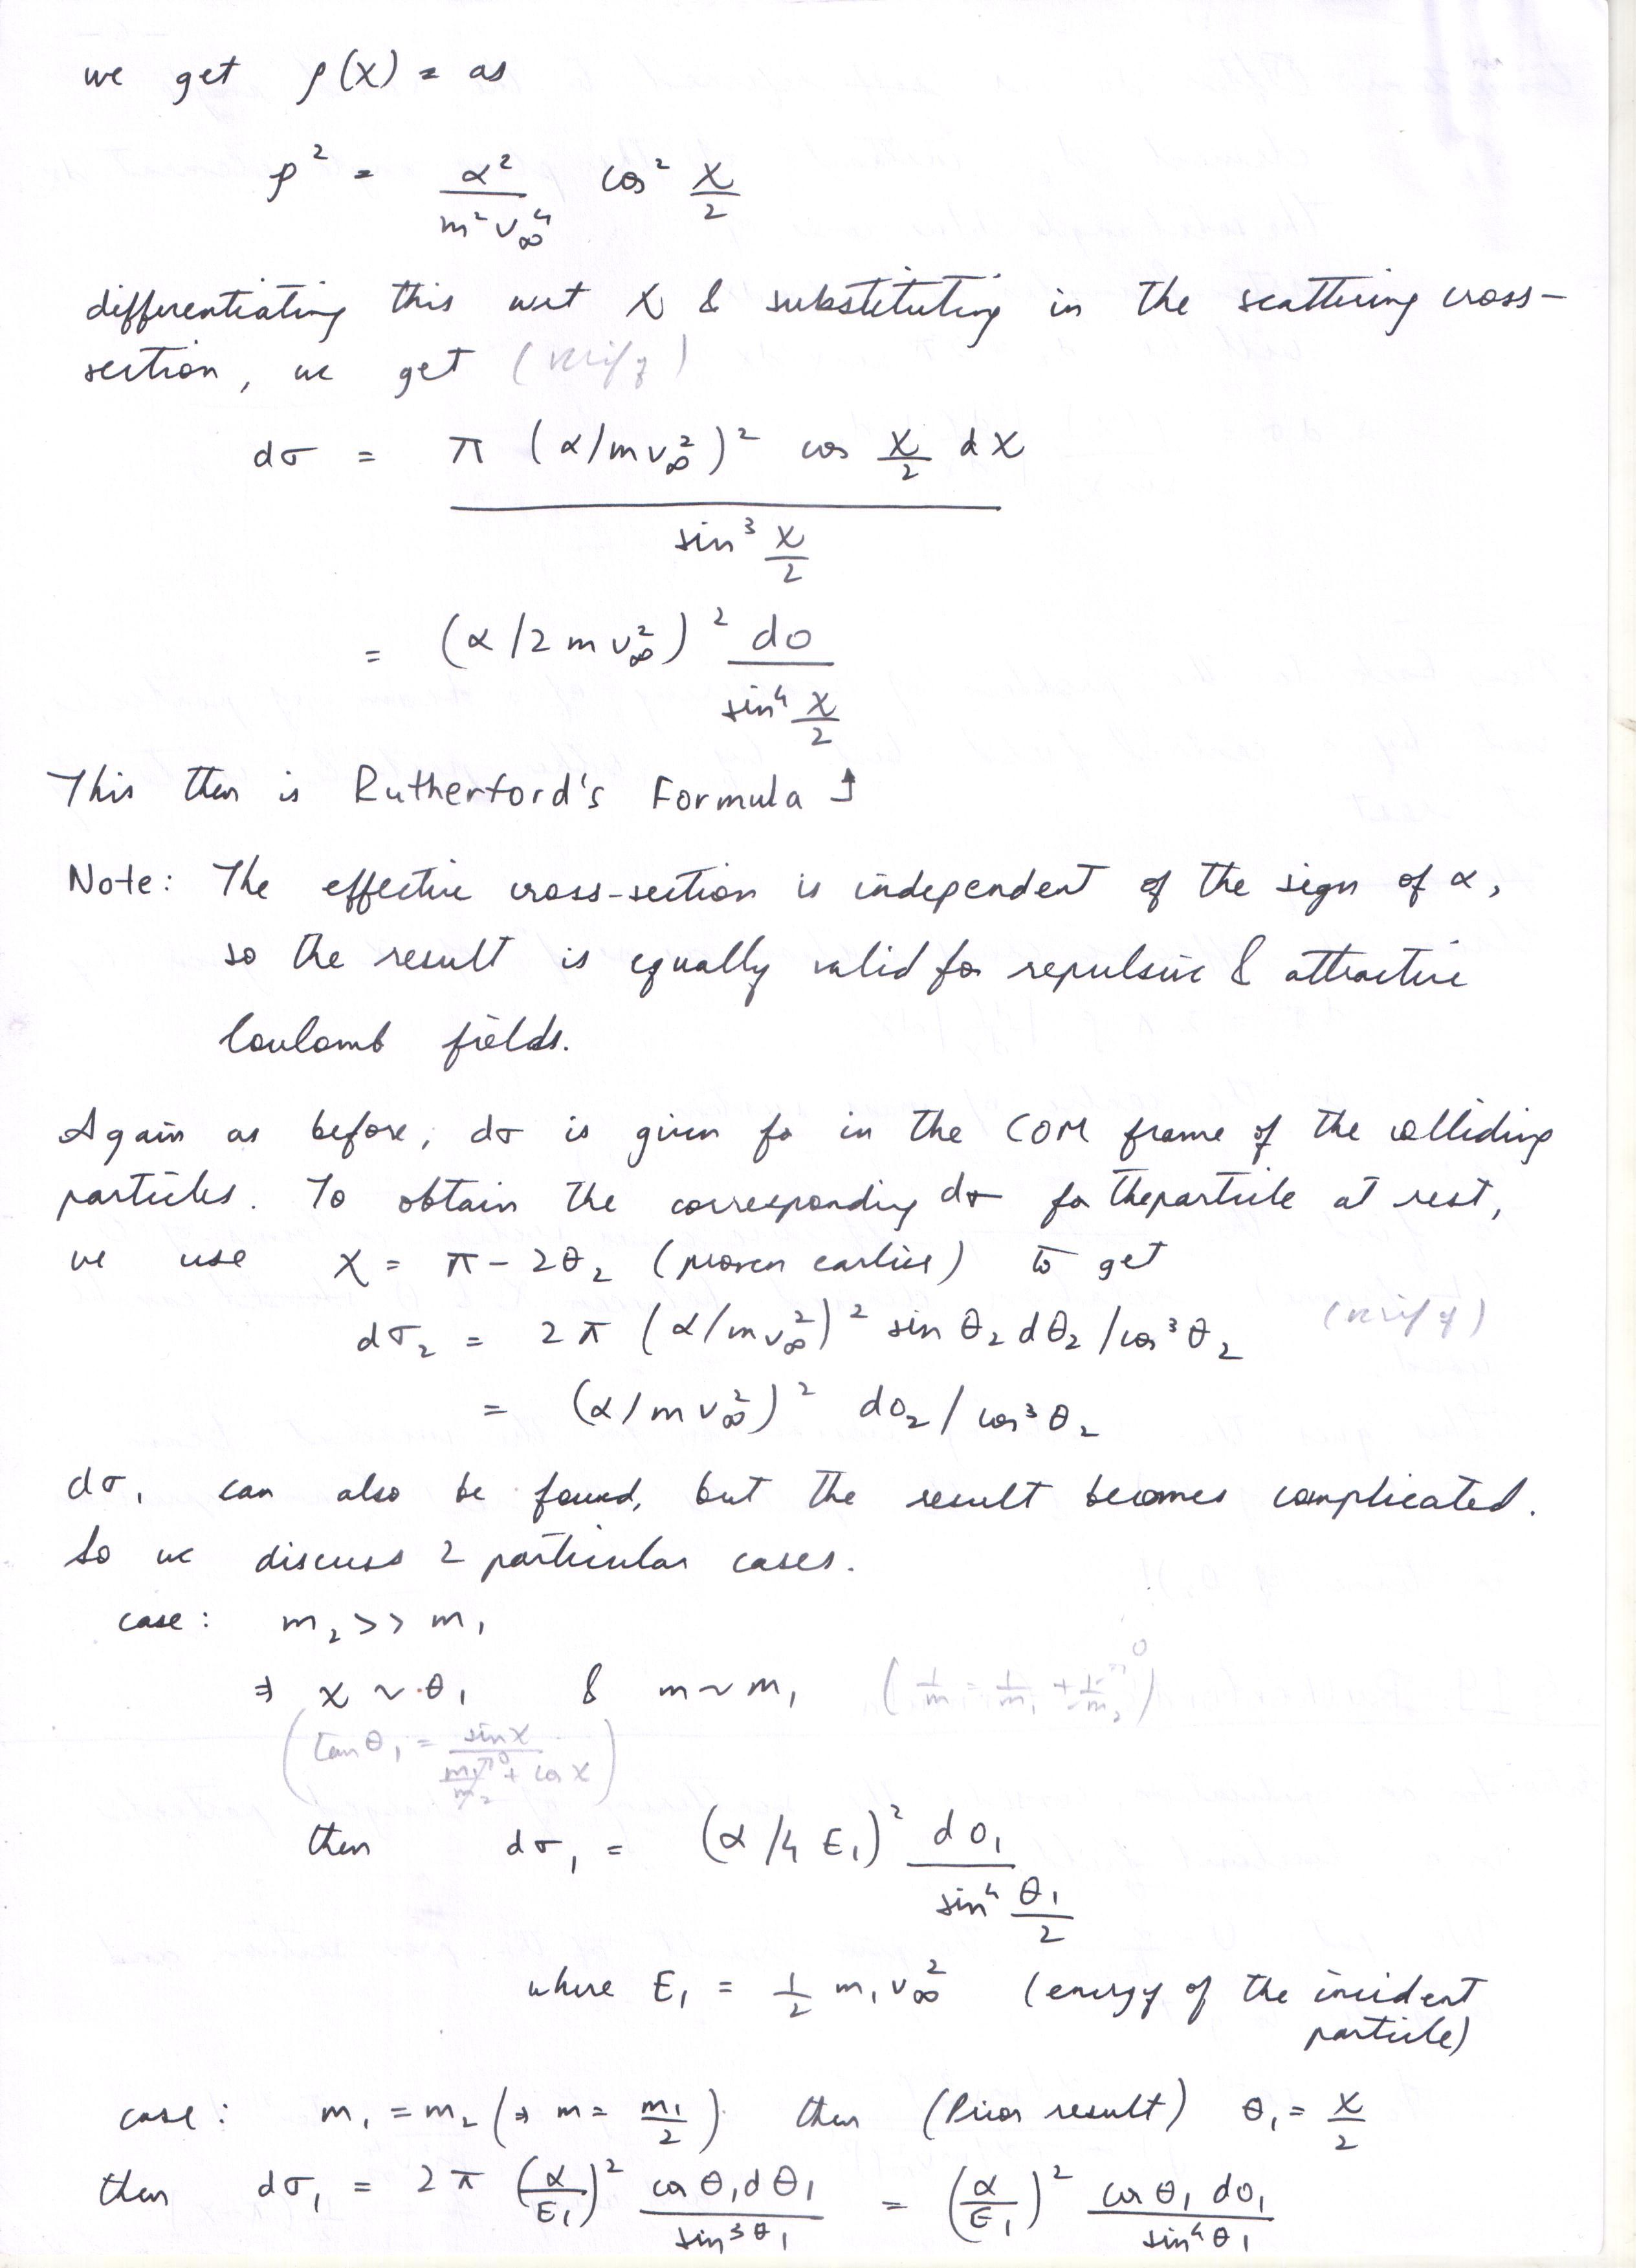 we get ρ(χ) = as
ρ² = α²/m²v∞⁴ cos² χ/2
differentiating this wrt χ & substituting in the scattering cross-
section, we get (verify)
dσ = π (α/mv∞²)² cos χ/2 dχ / sin³ χ/2
= (α/2mv∞²)² do / sin⁴ χ/2
This then is Rutherford's Formula ↥
Note: The effective cross-section is independent of the sign of α,
so the result is equally valid for repulsive & attractive
Coulomb fields.
Again as before, dσ is given fo in the COM frame of the colliding
particles. To obtain the corresponding dσ for the particle at rest,
we use χ = π - 2θ₂ (proven earlier) to get
dσ₂ = 2π (α/mv∞²)² sin θ₂ dθ₂ / cos³ θ₂ (verify)
= (α/mv∞²)² do₂ / cos³ θ₂
dσ₁ can also be found, but the result becomes complicated.
So we discuss 2 particular cases.
case: m₂ >> m₁
⇒ χ ~ θ₁ & m ~ m₁ (1/m = 1/m₁ + 1/m₂ → 0)
(tan θ₁ = sin χ / (m₁/m₂ → 0 + cos χ))
then dσ₁ = (α/4E₁)² do₁ / sin⁴ θ₁/2
where E₁ = 1/2 m₁v∞² (energy of the incident
particle)
case: m₁ = m₂ (⇒ m = m₁/2) then (Prior result) θ₁ = χ/2
then dσ₁ = 2π (α/E₁)² cos θ₁ dθ₁ / sin³ θ₁ = (α/E₁)² cos θ₁ do₁ / sin⁴ θ₁